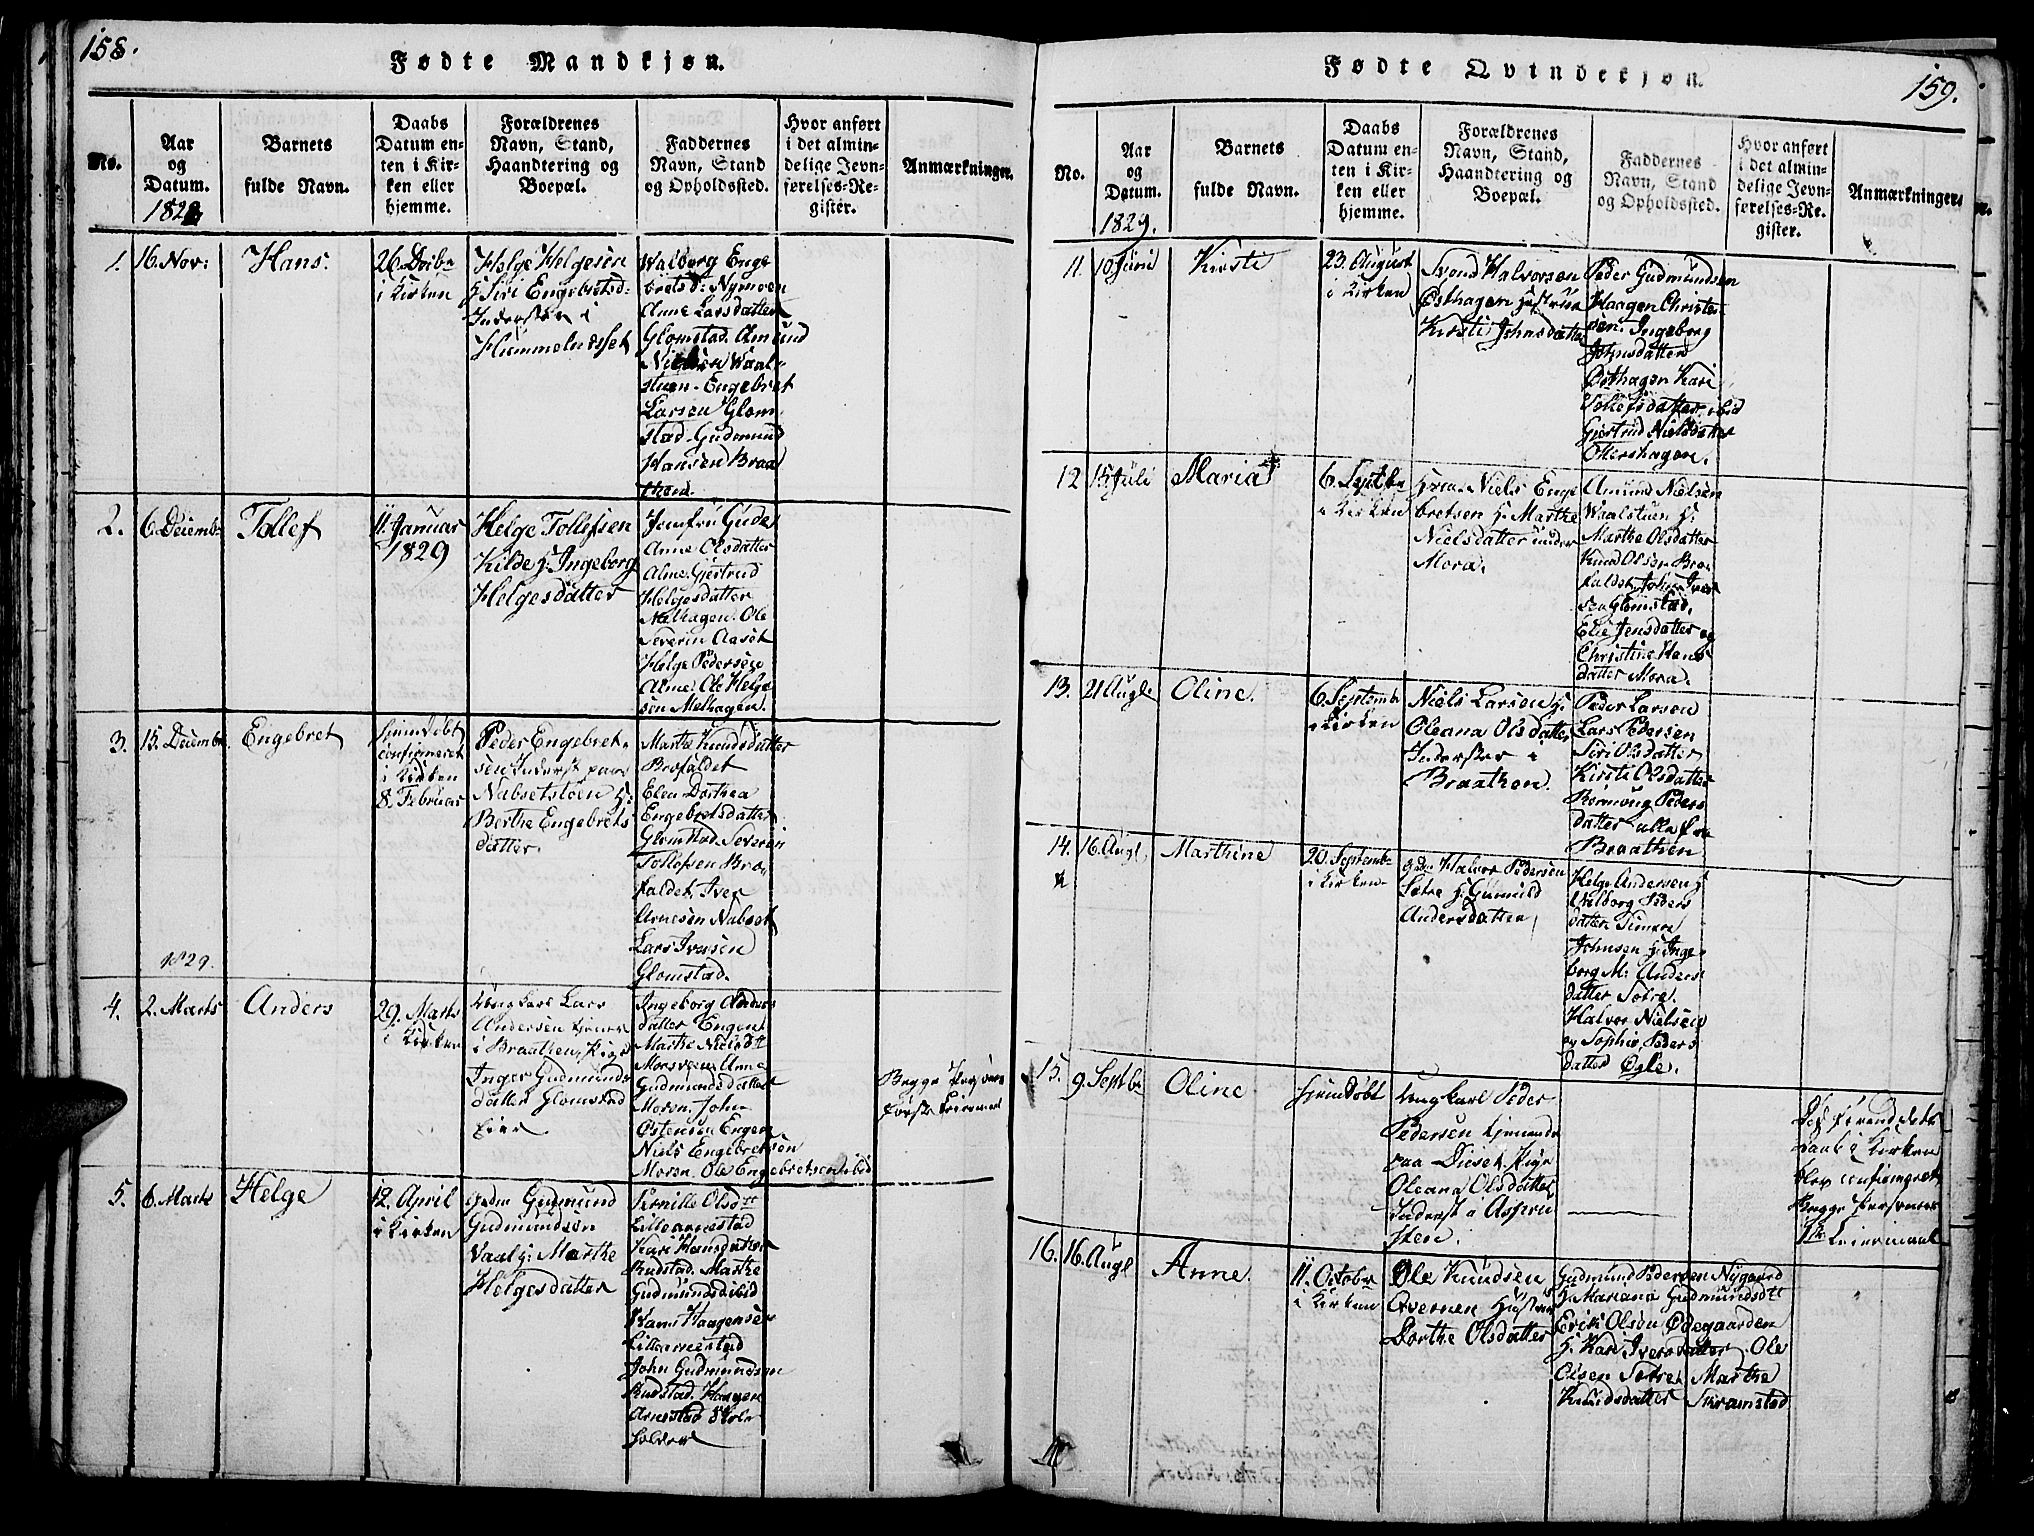 158.
Fødte Mandkjøn.
No.
Aar
og
Datum.
1828
Barnets
fulde Navn.
Daabs
Datum en-
ten i Kir-
ken eller
hjemme.
Forældrenes
Navn, Stand,
Haandtering og
Boepæl.
Faddernes
Navn, Stand
og Opholdssted.
Hvor anført
i det almin-
delige Jevn-
førelses-Re-
gister.
Anmærkninger.
1.
16. Nov:
Hans.
26. Decbr
i Kirken
Helge Helgesen
H: Siri Engebretsd:
Inderster i
Hummelvdset
Walborg Enge
bretsd: Nymoen
Anne Larsdatter
Glomstad. Amund
Nielsen Waal-
stuen. Engebret
Larsen Glom-
stad. Gudmund
Hansen Braa
then.
2.
6. Decembr
Tollef
11. Januar
1829
Helge Tollefsen
Kilde H: Ingeborg
Helgesdatter
Jomfru Gude
Anne Olsdatter
Alme. Gjertrud
Helgesdatter
Melhagen. Ole
Severin Aaset
Helge Pedersen
Alme. Ole Helge
sen Melhagen.
3.
15. Decembr.
Engebret
Hjemdøbt
confirmeret
i Kirken
8. Februar
Peder Engebret-
sen Inderst paa
Nabsetstøen H:
Berthe Engebrets
datter.
Marthe Knudsdatter
Brofaldet
Elen Dorthea
Engebretsdatter
Glomstad. Severin
Tollefsen Bro-
faldet. Iver
Arnesen Nabset
Lars Iversen
Glomstad.
1829.
4.
2. Marts
Anders
29. Marts
i Kirken
Ungkarl Lars
Andersen tjener
i Braathen, Pige
Inger Gudmunds
datter Glomstad
Eier
Ingeborg Anders
datter Engen
Marthe Nielsdtt
Moreen. Anne
Gudmundsdatter
Moren. John
Østensen Engen
Niels Engebretsen
Moren. Ole Engebretsen ibid
Begge Personers
første Leiermaal
5.
6. Marts
Helge
12. April
i Kirken
Gudmund
Gudmundsen
Vaal H: Marthe
Helgesdatter
Pernille Olsdtt
Lillearnestad
Kari Hansdatter
Rudstad. Marthe
Gudmundsd ibid
Hans Haagensen
Lillearnestad
John Gudmundsen
Rudstad. Haagen
Arnestad Skole
holder
159.
Fødte Qvindekjøn.
No.
Aar
og
Datum.
1829.
Barnets
fulde Navn.
Daabs
Datum en-
ten i Kir-
ken eller
hjemme.
Forældrenes
Navn, Stand,
Haandtering og
Boepæl.
Faddernes
Navn, Stand
og Opholdssted.
Hvor anført
i det almin-
delige Jevn-
førelses-Re-
gister.
Anmærkninger.
11.
10 Juni
Kirsti
23. August
i Kirken
Svend Halvorsen
Østhagen Hustrue
Kirsti Johnsdatter
Peder Gudmundsen
Haagen Christen
sen. Ingeborg
Johnsdatter
Østhagen Kari
Tollefsdatter ibid
Gjertrud Nielsdatter
Ottershagen.
12
15 Juli
Maria
6. Septbr
i Kirken
Niels Enge
bretsen H: Marthe
Nielsdatter under
Mora.
Amund Nielsen
Waalstuen H:
Marthe Olsdatter
Knud Olsen Bro-
faldet. John Iver
sen Glomstad.
Elie Jensdatter og
Christine Hans
datter Mora.
13.
21 Augl
Oline.
6. Septembr
i Kirken
Niels Larsen H:
Oleana Olsdatter
Inderster i
Braathen.
Peder Larsen
Lars Pedersen
Siri Olsdatter
Kirsti Olsdatter
Rønnoug Peders
datter alle fra
Braathen
14.
16. Augl,
Marthine
20. Septembr
i Kirken
Halvor Pedersen
Sætre H: Gunnild
Andersdatter,
Helge Andersen H:
Walborg Peders
datter Timern
Johnsen H: Inge
borg M: Anders
datter Sætre.
Halvor Nielsen
og Sophie Peders
datter Øgle.
15.
9. Septbr
Oline
Hjemdøbt
Ungkarl Peder
Pedersen tjenende
paa Diset. Pige
Oleana Olsdatter
Inderst i Aspen
steen.
Daab i Kirken
blev confirmeret
Begge Personers
1te Leiermaal
16.
16. Augl
Anne.
11. October
i Kirken
Ole Knudsen
Qvernen Hustrue
Dorthe Olsdatter
Gudmund Pedersen Nygaard
H: Mariana Gudmundsdtt
Erik Olsen Ødegaarden
H: Kari Iversdatter. Ole
Olsen Sætre, Marthe
Knudsdatter Skramstad